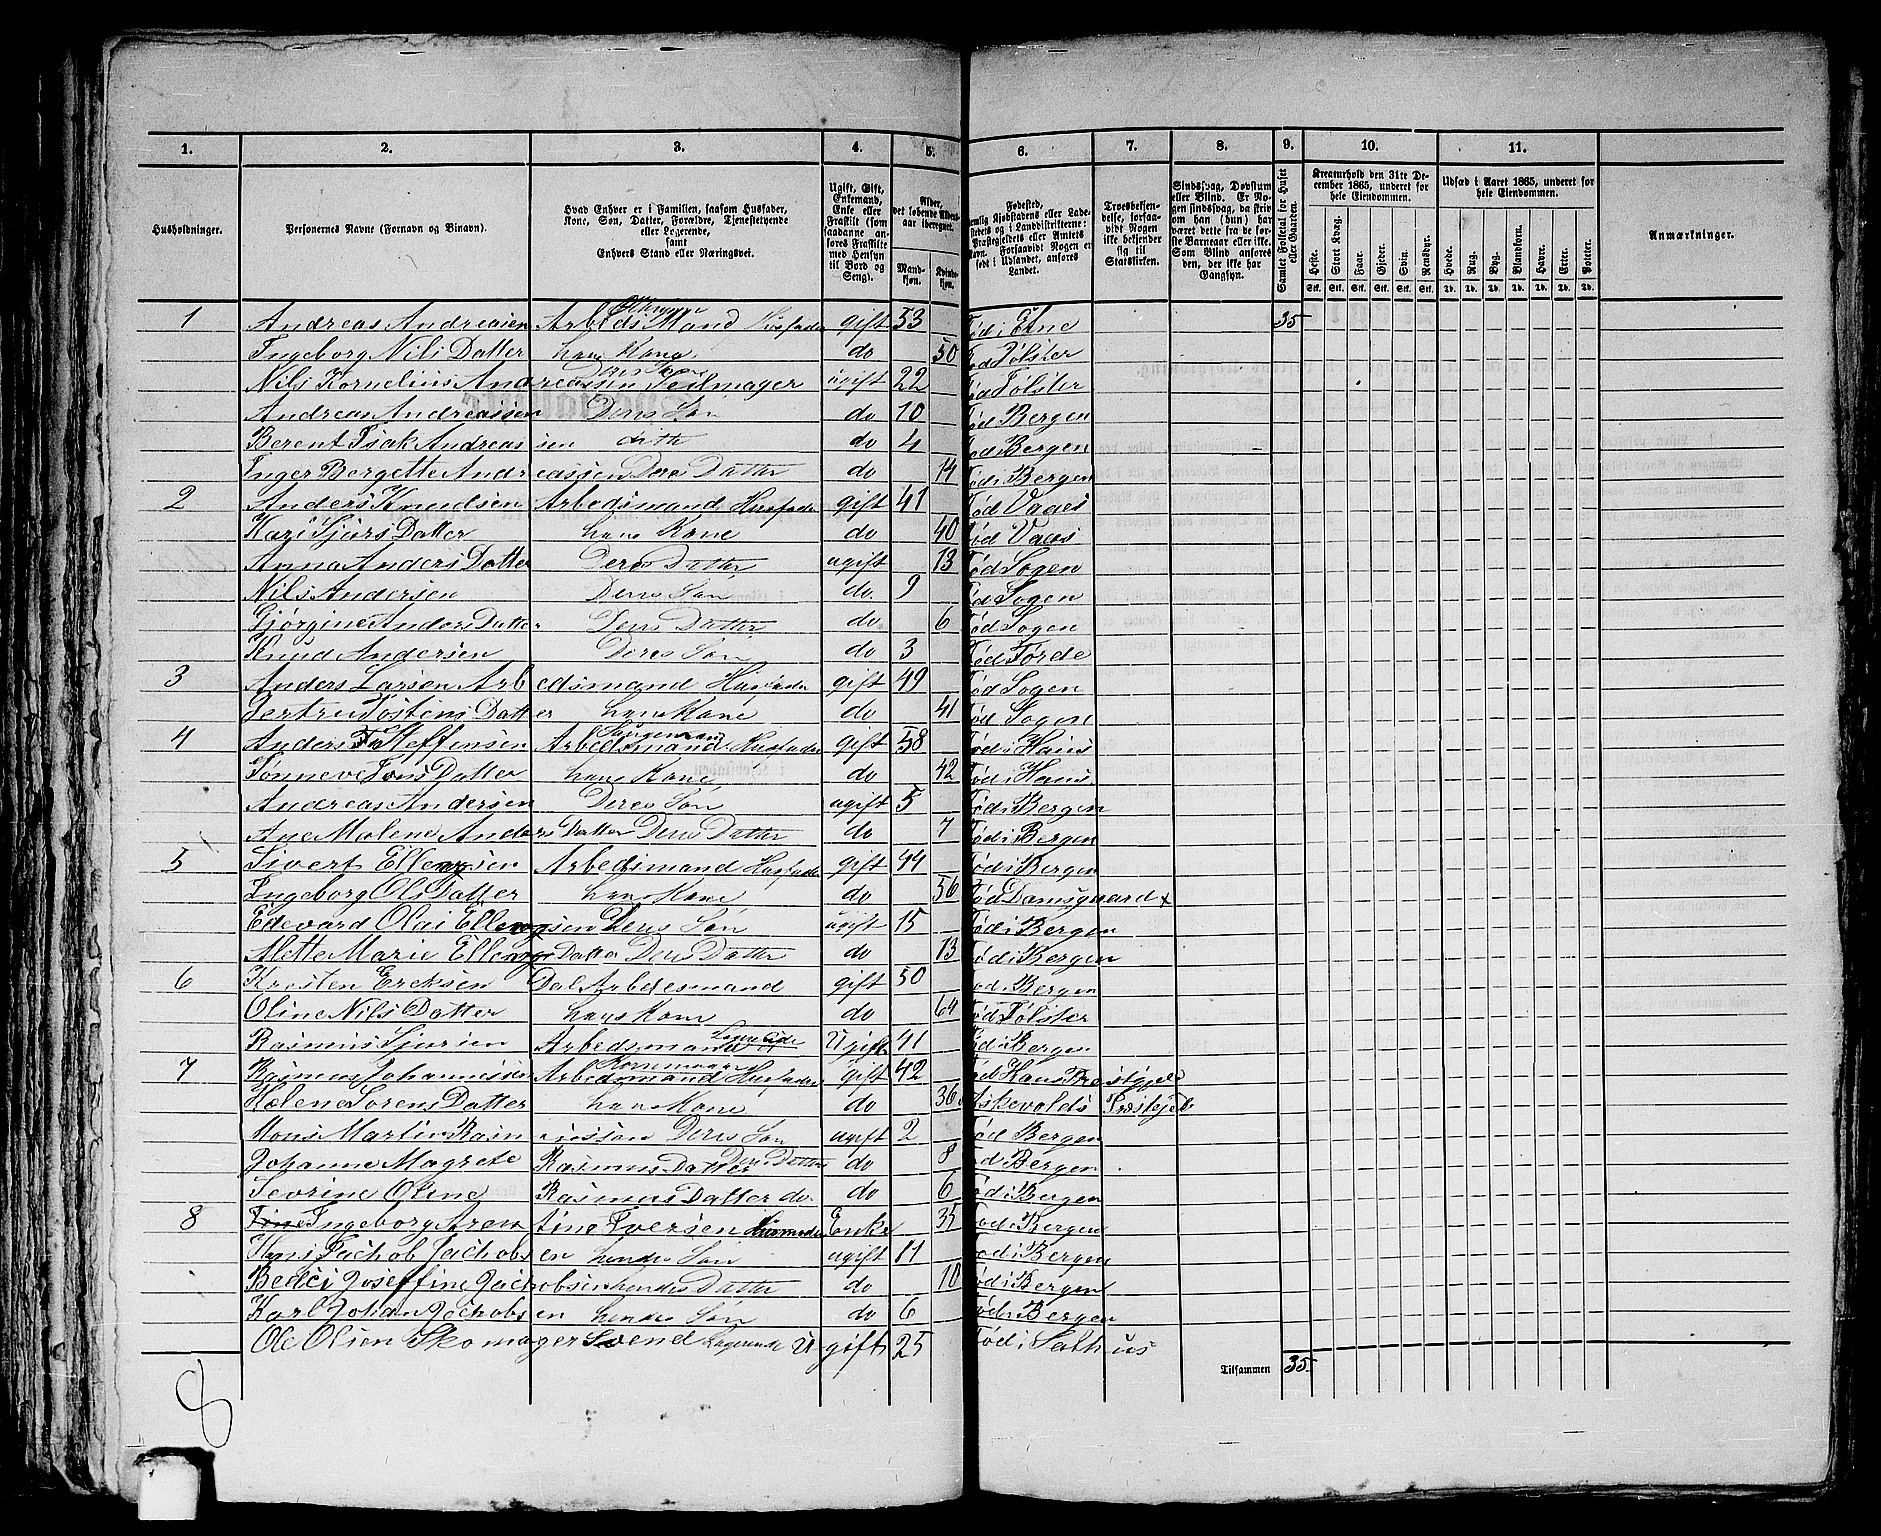 1. 2. 3. 4. 5. 6. 7. 8. 9. 10. 11.
Husholdninger.
Personernes Navne (Fornavn og Binavn).
Hvad Enhver er i Familien, saasom Husfader, Kone, Søn, Datter, Forældre, Tjenestetyende eller Logerende, samt Enhvers Stand eller Næringsvei.
Ugift, Gift, Enkemand, Enke eller Fraskilt (som saadanne anføres Fraskilte med Hensyn til Bord og Seng).
Alder, det løbende Alders-aar iberegnet.
Mandkjøn. Kvindekjøn.
Fødested,
Troesbekjendelse, forsaavidt Nogen ikke bekjender sig til Statskirken.
Sindssvag, Døvstum eller Blind. Er Nogen sindssvag, da skriv om han (hun) har været dette fra de første Barneaar eller ikke. Som Blind anføres den, der ikke har Gangsyn.
Samlet Folketal for Huset eller Gaarden.
Kreaturhold den 31te December 1865, underet for hele Eiendommen.
Heste. Stort Kvæg. Faar. Gjeder. Svin. Rensdyr.
Udsæd i Aaret 1865, underet for hele Eiendommen.
Hvede. Rug. Byg. Blandkorn. Havre. Erter. Poteter.
Anmærkninger.
1 Andreas Andreasen Arbeds Mand Husfader gift 53 Fød i Etne 35
Ingeborg Nils Datter hans Kone do 50 Fød Jølster
Nils Kornelius Andreassen Deres Søn Seilmager ugift 22 Fød Jølster
Andreas Andreassen Deres Søn do 10 Fød Bergen
Berent Isak Andreassen ditto do 4 Fød i Bergen
Inger Bergette Andreassen Deres Datter do 14 Fød i Bergen
2 Anders Knudsen Arbedsmand Husfader gift 41 Fød Vaes
Kari Sjurs Datter hans Kone do 40 Fød Vaes
Anna Anders Datter Deres Datter ugift 13 Fød Sogen
Nils Andersen Deres Søn do 9 Fød Sogen
Gjørgine Anders Datter Deres Datter do 6 Fød Sogen
Knud Andersen Deres Søn do 3 Fød Førde
3 Anders Larsen Arbedsmand Husfader gift 49 Fød Sogen
Jertru Tostens Datter hans Kone do 41 Fød Sogen
4 Anders Steffensen Arbedsmand Husfader gift 58 Fød i Haus
Sønneve Jons Datter hans Kone do 42 Fød i Haus
Andreas Andersen Deres Søn ugift 5 Fød i Bergen
Ane Malene Anders Datter Deres Datter do 7 Fød i Bergen
5 Sivert Ellengsen Arbedsmand Husfader gift 44 Fød i Bergen
Ingeborg Ols Datter hans Kone do 56 Fød Damsgaard x
Edevard Olai Ellengsen Deres Søn ugift 15 Fød i Bergen
Mette Marie Ellengs Datter Deres Datter do 13 Fød i Bergen
6 Kresten Ereksen Dal Arbedesmand gift 50 Fød Bergen
Oline Nils Datter hans Kone do 64 Fød Jølster
Rasmus Sjursen Arbedsmand Ugift 41 Fød i Bergen
7 Rasmus Johannessen Arbedsmand Husfader gift 42 Fød Haus Prestgjeld
Helene Sorens Datter hans Kone do 36 Askevolds Præstejel
Mons Martin Rasmussøn Deres Søn ugift 2 Fød Bergen
Johanne Magrete Rasmus Datter Deres Datter do 8 Fød Bergen
Sevrine Oline Rasmus Datter do do 6 Fød i Bergen
8 Ingeborg Arentine Iversen Enke 35 Fød i Bergen
Hans Jachob Jachobsen hendes Søn ugift 11 Fød i Bergen
Josefine Jachobsen hendes Datter do 10 Fød i Bergen
Karl Johan Jachobsen hendes Søn do 6 Fød i Bergen
Ole Olsen Skomager Svend Logerende Ugift 25 Fød i
Tilsammen 35
8